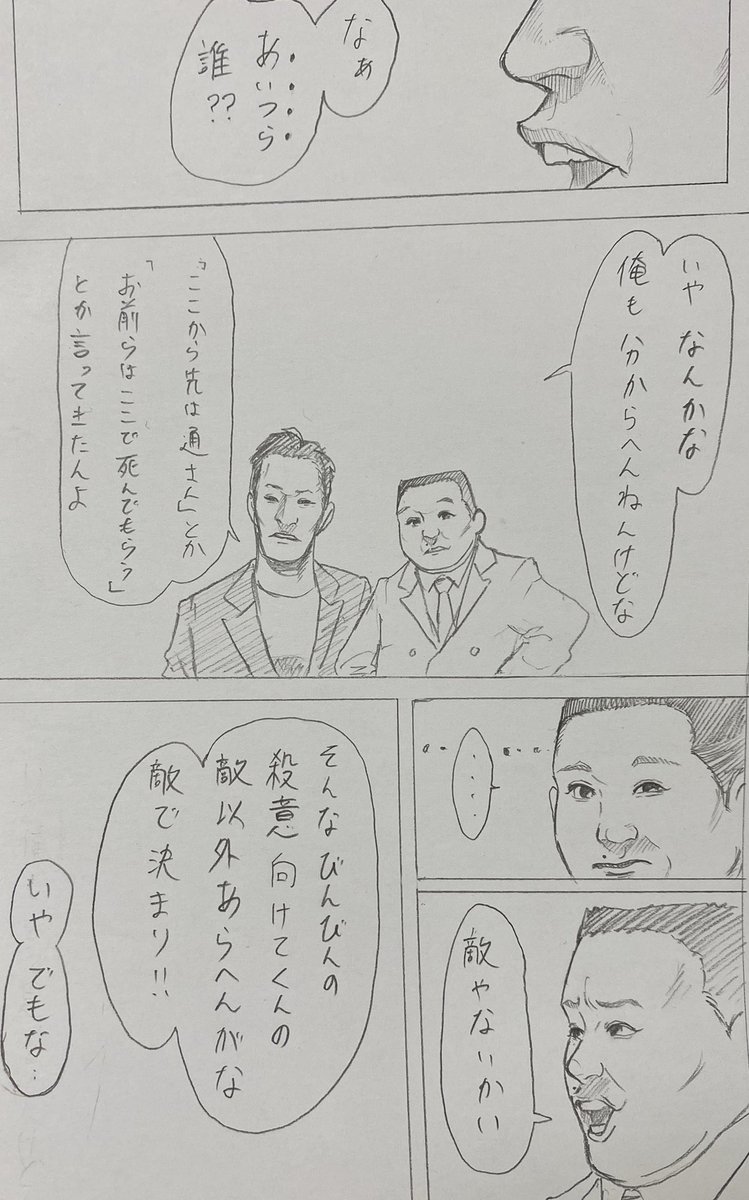 なぁ
あいつら
誰??
いや なんかな
俺も分からへんねんけどな
「ここから先は通さん」とか
「お前らはここで死んでもらう」
とか言ってきたんよ
・・・・
敵やないかい
そんなびんびんの
殺意向けてくんの
敵以外あらへんがな
敵で決まり!!
いや でもな…